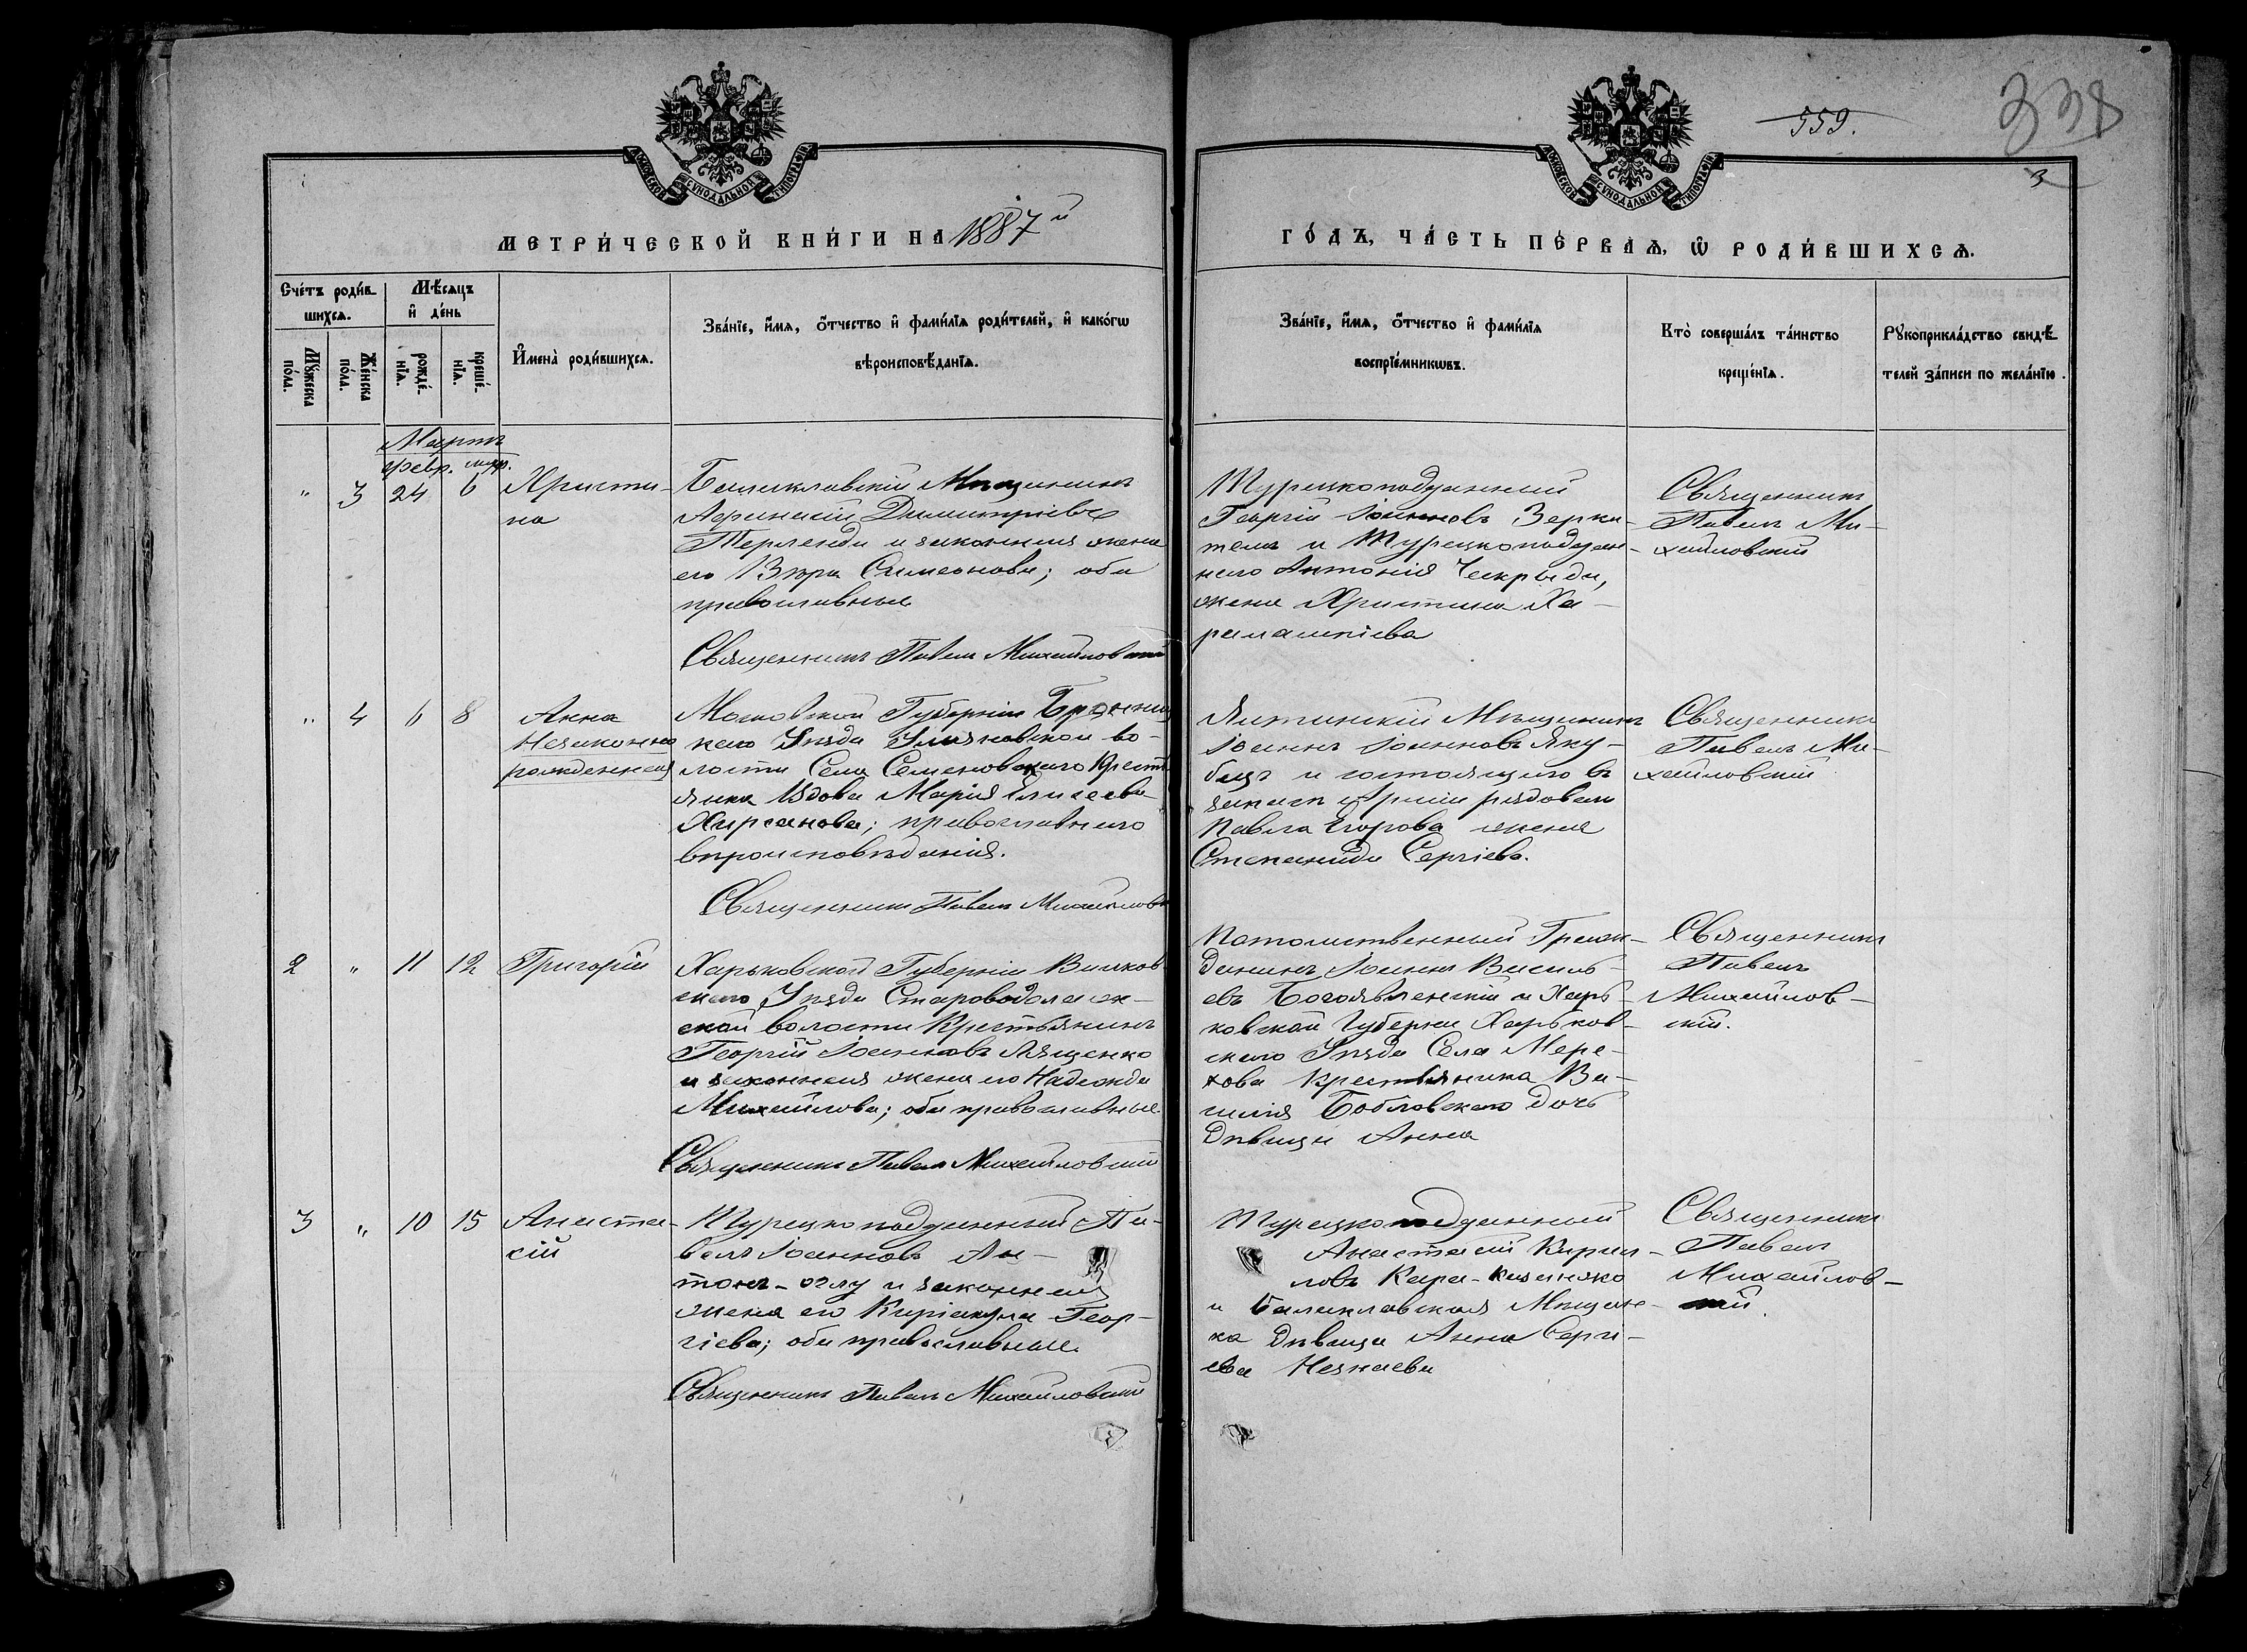 559.
338
3
МОСКОВСКОЙ СѴНОДАЛЬНОЙ ТИПОГРАФІИ
МОСКОВСКОЙ СѴНОДАЛЬНОЙ ТИПОГРАФІИ
МЕТРИ́ЧЕСКОЙ КНИ́ГИ НА 1887й
ГО́ДЪ, ЧА́СТЬ ПЕ́РВАѦ, Ѡ҆ РОДИ́ВШИХСѦ.
Сче́тъ роди́в
шихсѧ.
Мѣ́сѧцъ
и҆ де́нь
Мꙋ́жеска
по́ла.
Же́нска
по́ла.
рожде́-
нїѧ.
креще́-
нїѧ.
И҆мена̀ роди́вшихсѧ.
Зва́нїе, и҆́мѧ, ѻ҆́тчество и҆ фами́лїѧ роди́телей, и҆ како́гѡ
вѣроисповѣ́данїѧ.
Зва́нїе, и҆́мѧ, ѻ҆́тчество и҆ фами́лїѧ
воспрїе́мникѡвъ.
Кто̀ соверша́лъ та́инство
креще́нїѧ.
Рꙋкоприкла́дство свидѣ́
телей за́писи по жела́нїю.
Мартъ
февр. мар.
" 3 24 6 Христи-
на
Балаклавскій Мѣщанинъ
Димитріевъ
Терленди и законная жена
его Вѣра Симеонова; оба
православные
Священникъ Павелъ Михайловскій
Турецкоподданный
Георгій Іоанновъ Зерка-
тели и Турецкоподдан-
наго Антонія
жена Христина Ха-
рлампіева
Священникъ
Павелъ Ми-
хайловскій
" 4 6 8 Анна
Незаконно
рожденная
Московской Губерніи Бронниц
каго Уѣзда во-
лости Села Семеновскаго Кресть
янка Вдова Марія Елисеева
Хирсанова; православнаго
вѣроисповѣданія.
Священникъ Павелъ Михайловск
Ялтинскій Мѣщанинъ
Іоаннъ Іоанновъ Яку-
бецъ и состоящаго въ
запасѣ арміи рядоваго
Павла Егорова жена
Степанида Сергіева.
Священникъ
Павелъ Ми-
хайловскій
2 " 11 12 Григорій
Харьковской Губерніи Валков
скаго Уѣзда Староводолаж-
ской волости Крестьянинъ
Георгій Іоанновъ Лященко
и законная жена его Надежда
Михайлова; оба православные.
Священникъ Павелъ Михайловскій
Потомственный Граж-
данинъ Іоаннъ Василь-
евъ Богоявленскій и Харь-
ковской Губерніи Харьков-
скаго Уѣзда Села Мере-
хова Крестьянина Ва-
силія Бобловскаго дочь
Дѣвица Анна
Священникъ
Павелъ
Михайлов-
скій.
3 " 10 15 Анаста-
сій
Турецко подданный Па-
велъ Іоанновъ Ан-
тонъ-оглу и законная
жена его Киріакула Геор-
гіева; оба православные.
Священникъ Павелъ Михайловскій
Турецкоподданный
Анастасій Кирил-
ловъ
и Балаклавская Мѣщан-
ка Дѣвица Анна Серги-
ева Незнаева
Священникъ
Павелъ
Михайлов-
скій.